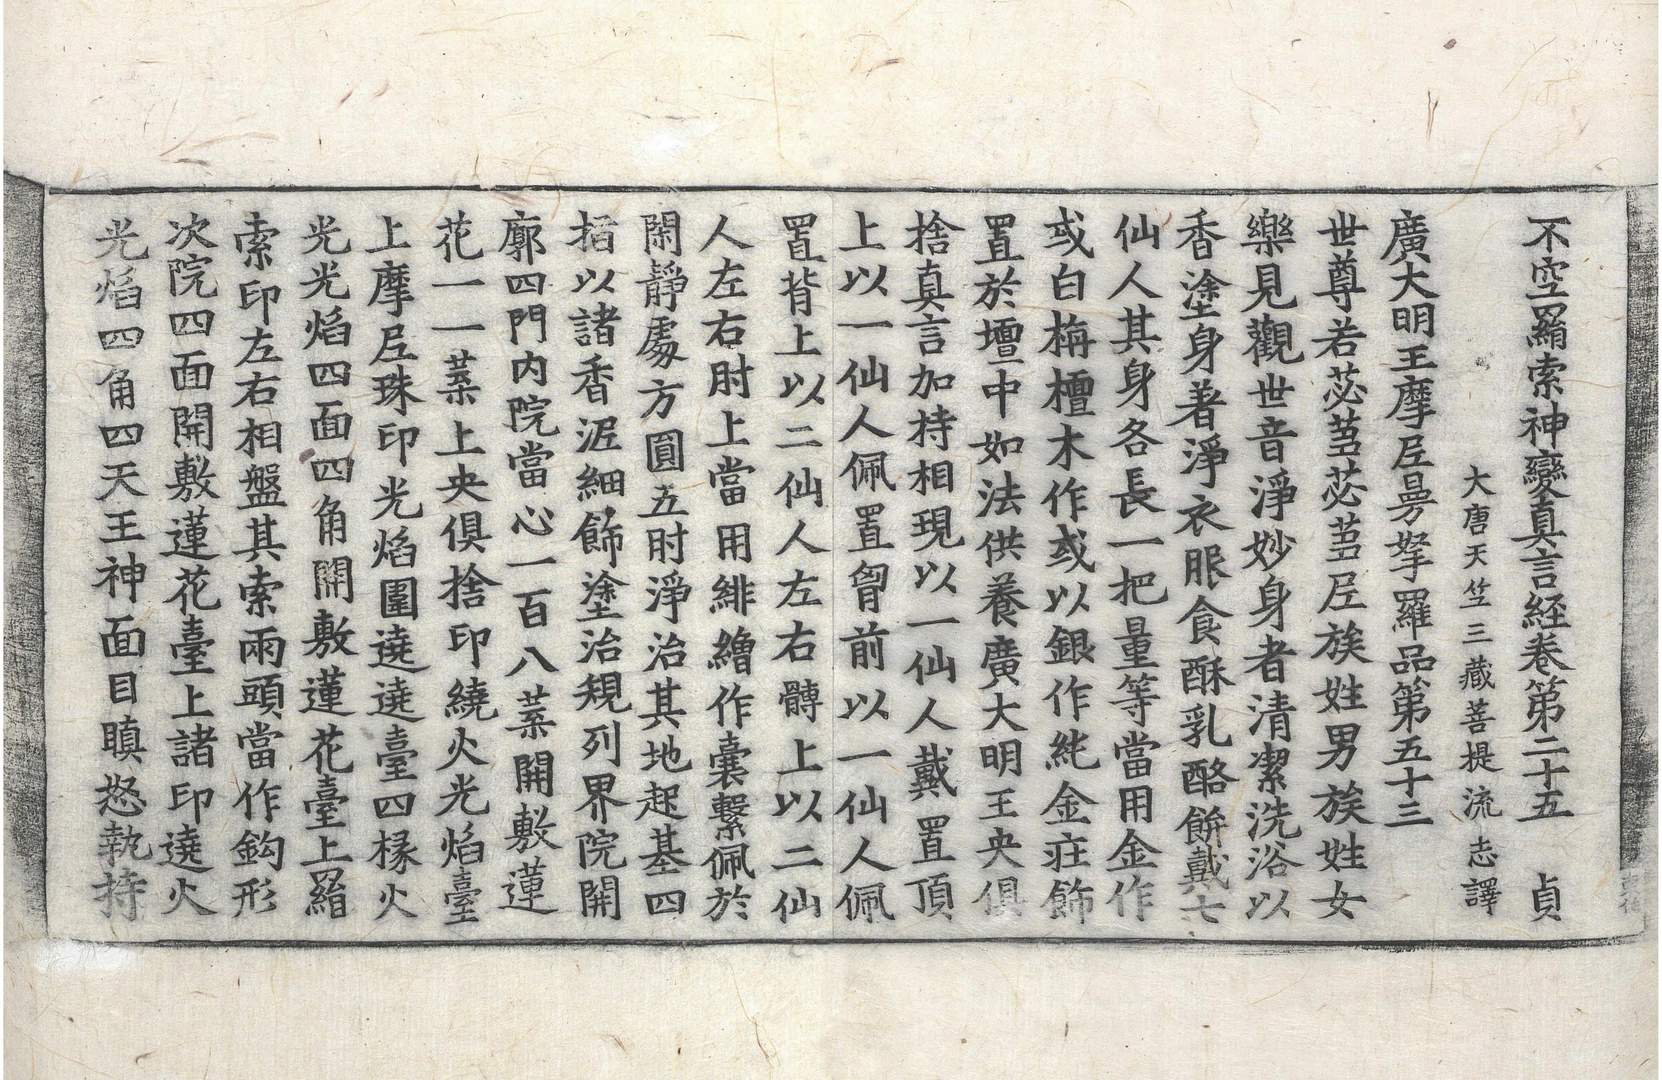 不空羂索神變真言經卷第二十五　貞
大唐天竺三藏菩提流志譯
廣大明王摩尼曼拏羅品第五十三
世尊若苾芻苾芻尼族姓男族姓女
樂見觀世音淨妙身者清潔洗浴以
香塗身著淨衣服食酥乳酪餅戴七
仙人其身各長一把量等當用金作
或白栴檀木作或以銀作純金莊飾
置於壇中如法供養廣大明王央俱
捨真言加持相現以一仙人戴置頂
上以一仙人佩置胷前以一仙人佩
置背上以二仙人左右髆上以二仙
人左右肘上當用緋繒作囊繫佩於
閑靜處方圓五肘淨治其地起基四
指以諸香泥細飾塗治䂓列界院開
廓四門內院當心一百八葉開敷蓮
花一一葉上央俱捨印繞火光焰臺
上摩尼珠印光焰圍遶遶臺四㨾火
光光焰四面四角開敷蓮花臺上羂
索印左右相盤其索兩頭當作鈎形
次院四面開敷蓮花臺上諸印遶火
光焰四角四天王神面目瞋怒執持